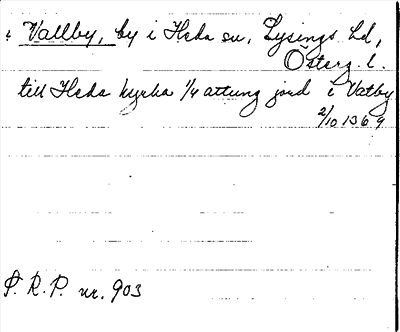 Vallby, by i Heda sn, Lysings hd,
Österg. l.
till Heda kyrka 1/4 attung jord i Vatby
2/10 1369
P. R. P. nr. 903